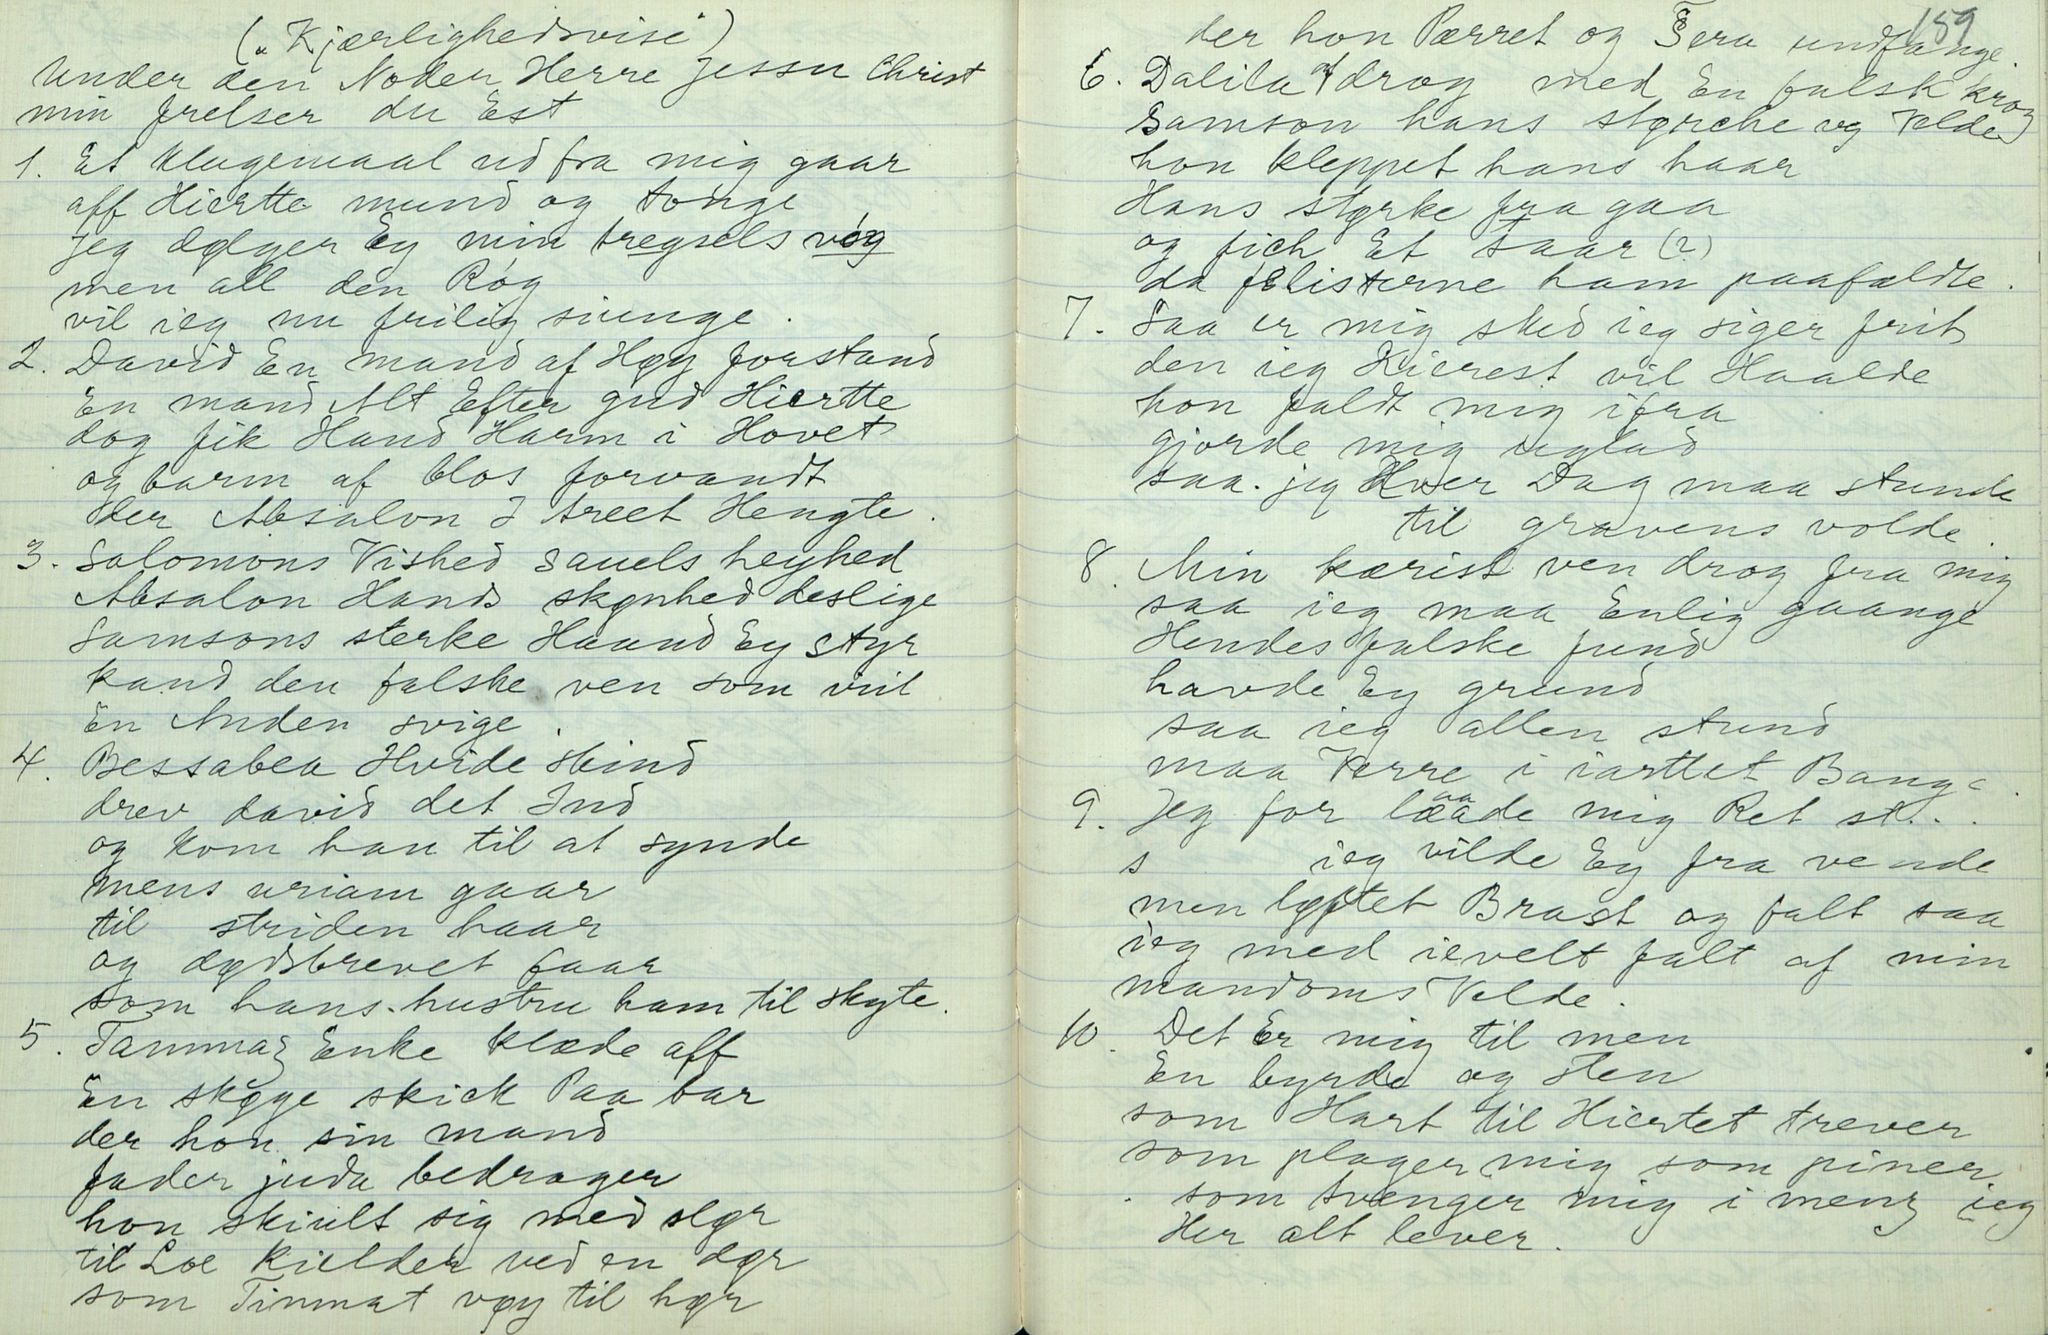 ("Kjærlighedsvise")
Under den Noder Herre Jessu Christ
min frelser du Est
1. Et klagemaal ud fra mig gaar
aff Hiertte mund og tonge
jeg dølger Ey min tregsels vóg
men all den Róg
vil ieg nu frilig siunge.
2. David En mand af Høy forstand
En mand Alt Efter gud Hiertte
dog fik Hand Harm i Hovet
og barm af blos forvandt
der Absalon I treet Hengte.
3. Salomons Vished sauels heyhed
Absalon Hands skønhed deslige
Samsons sterke Haand Ey styr
kand den falske ven som vil
En Anden svige.
4. Bessabea Hvide skind
drev david det Ind
og kom han til at synde
mens uriam gaar
til striden haar
og dødsbrevet faar
som hans hustru ham til skyte.
5. Tammaz Enke klæde aff
En skøge skick Paa bar
der hon sin mand
fader juda bedrager
hon skiult sig med slør
til Loe kielder ved en dør
som Tinmat vøy til hør
159
der hon Pærret og Sera undfange.
6. Dalila af drog med En falsk krog
Samson hans størche og Velde
hon kleppet hans haar
Hans størke fra gaa
og fich Et saar (?)
da felisterne ham paafældte.
7. Saa er mig sked ieg siger frit
den ieg Kierest vil Haalde
hon faldt mig ifra
gjorde mig uglad
saa jeg Hver Dag maa stunde
til gravens volde.
8. Min kærist ven drog fra mig
saa ieg maa Enlig gaange
Hendes falske fund
havde Ey grund
saa ieg allen stund
maa Verre i iarttet Bange.
9. Jeg for laade mig Ret st...
s ieg vilde Ey fra vende
men løftet Brast og falt saa
ieg med ievelt falt af min
mandoms Velde.
10. Det Er mig til men
En byrde og sten
som Hart til Hiertet trever
som plager mig som piner
som tvenger mig i menz ieg
Her alt lever.